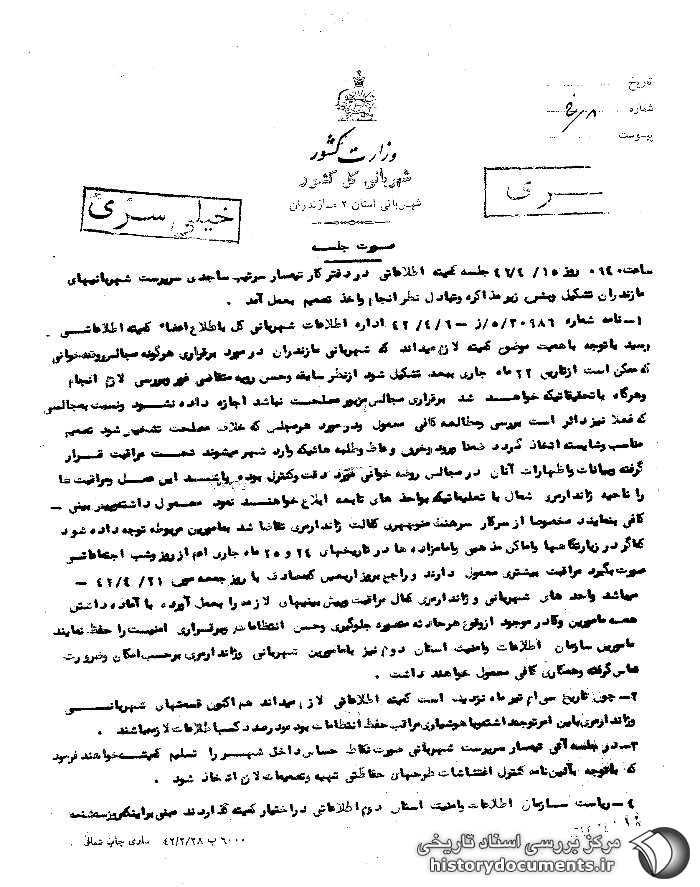 تاریخ
شماره
پیوست
وزارت کشور
شهربانی کل کشور
شهربانی استان ۲ مازندران
سری
خیلی سری
صورت جلسه
ساعت ۰۹۴۰ روز ۱۵/ ۴۲/۴ جلسه کمیته اطلاعاتی در دفتر کار تیمسار سرتیپ ساجدی سرپرست شهربانیهای
مازندران تشکیل و بشرح زیر مذاکره و تبادل نظر انجام و اخذ تصمیم بعمل آمد .
۱- نامه شماره ۲۰۹۸۶/۵/ز - ۴۲/۴/۶ اداره اطلاعات شهربانی کل باطلاع اعضاء کمیته اطلاعاتی
رسید باتوجه باهمیت موضوع کمیته لازم میداند که شهربانی مازندران در مورد برقراری هرگونه مجالس روضه خوانی
که ممکن است از تاریخ ۲۲ ماه جاری ببعد تشکیل شود از نظر سابقه و حسن رویه متقاضی غور و بررسی لازم انجام
و هرگاه با تحقیقاتیکه خواهند شد برقراری مجالس مزبور مصلحت نباشد اجازه داده نشود و نسبت به مجالسی
که فعلا نیز دائر است بررسی و مطالعه کافی معمول و در مورد هر مجلس که خلاف مصلحت تشخیص شود تصمیم
مناسب و شایسته اتخاذ گردد ضمنا ورود و خروج وعاظ و طلبه هائیکه وارد شهر میشوند تحت مراقبت قرار
گرفته و بیانات و اظهارات آنان در مجالس روضه خوانی مورد دقت و کنترل بوده این عمل و مراقبت ها
را ناحیه ژاندارمری شمال با تعلیماتیکه بواحد های تابعه ابلاغ خواهند نمود معمول داشته و پیش بینی -
کافی بنمایند مخصوصا از سرکار سرهنگ منوچهری کفالت ژاندارمری تقاضا شد بمامورین مربوطه توجه داده شود
که اگر در زیارتگاهها و اماکن مذهبی و امامزاده ها در تاریخهای ۲۴ و ۲۵ ماه جاری اعم از روز و شب اجتماعاتی
صورت بگیرد مراقبت بیشتری معمول دارند و راجع بروز اربعین که مصادف با روز جمعه ۴۲/۴/۲۱ -
میباشد واحد های شهربانی و ژاندارمری کمال مراقبت و پیش بینیهای لازمه را بعمل آورده با آماده داشتن
همه مامورین و کادر موجود از وقوع هر حادثه متصوره جلوگیری و حسن انتظامات و برقراری امنیت را حفظ نمایند
مامورین سازمان اطلاعات و امنیت استان دوم نیز با مامورین شهربانی و ژاندارمری برحسب امکان و ضرورت
تماس گرفته و همکاری کافی معمول خواهند داشت .
۲- چون تاریخ سی ام تیر ماه نزدیک است کمیته اطلاعاتی لازم میداند هم اکنون قسمتهای شهربانی
و ژاندارمری باین امر توجه داشته و با هوشیاری مراقب حفظ انتظامات بوده و در صدد کسب اطلاعات لازمه باشند .
۳- در جلسه آتی تیمسار سرپرست شهربانی صورت نقاط حساس داخل شهر را تسلیم کمیته خواهند فرمود
که باتوجه بآئین نامه کنترل اغتشاشات طرحهای حفاظتی تهیه و تصمیمات لازم اتخاذ شود .
۴- ریاست سازمان اطلاعات و امنیت استان دوم اطلاعاتی در اختیار کمیته گذاردند مبنی براینکه روز سه شنبه
۶۰۰۰ ب ۴۲/۲/۲۸ ساری چاپ شمالی
مرکز بررسی اسناد تاریخی
historydocuments.ir